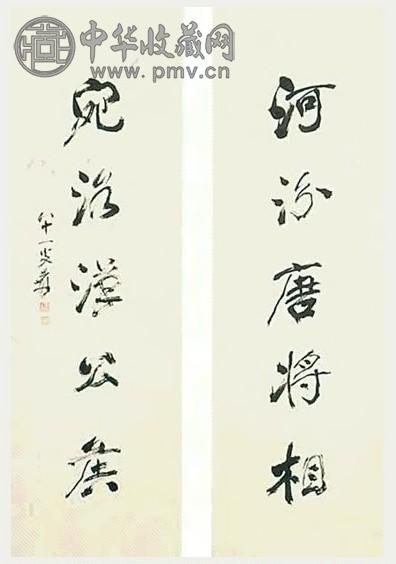 中华收藏网
www.pmv.cn
河汾唐将相
宛洛漢公侯
八十一叟爰